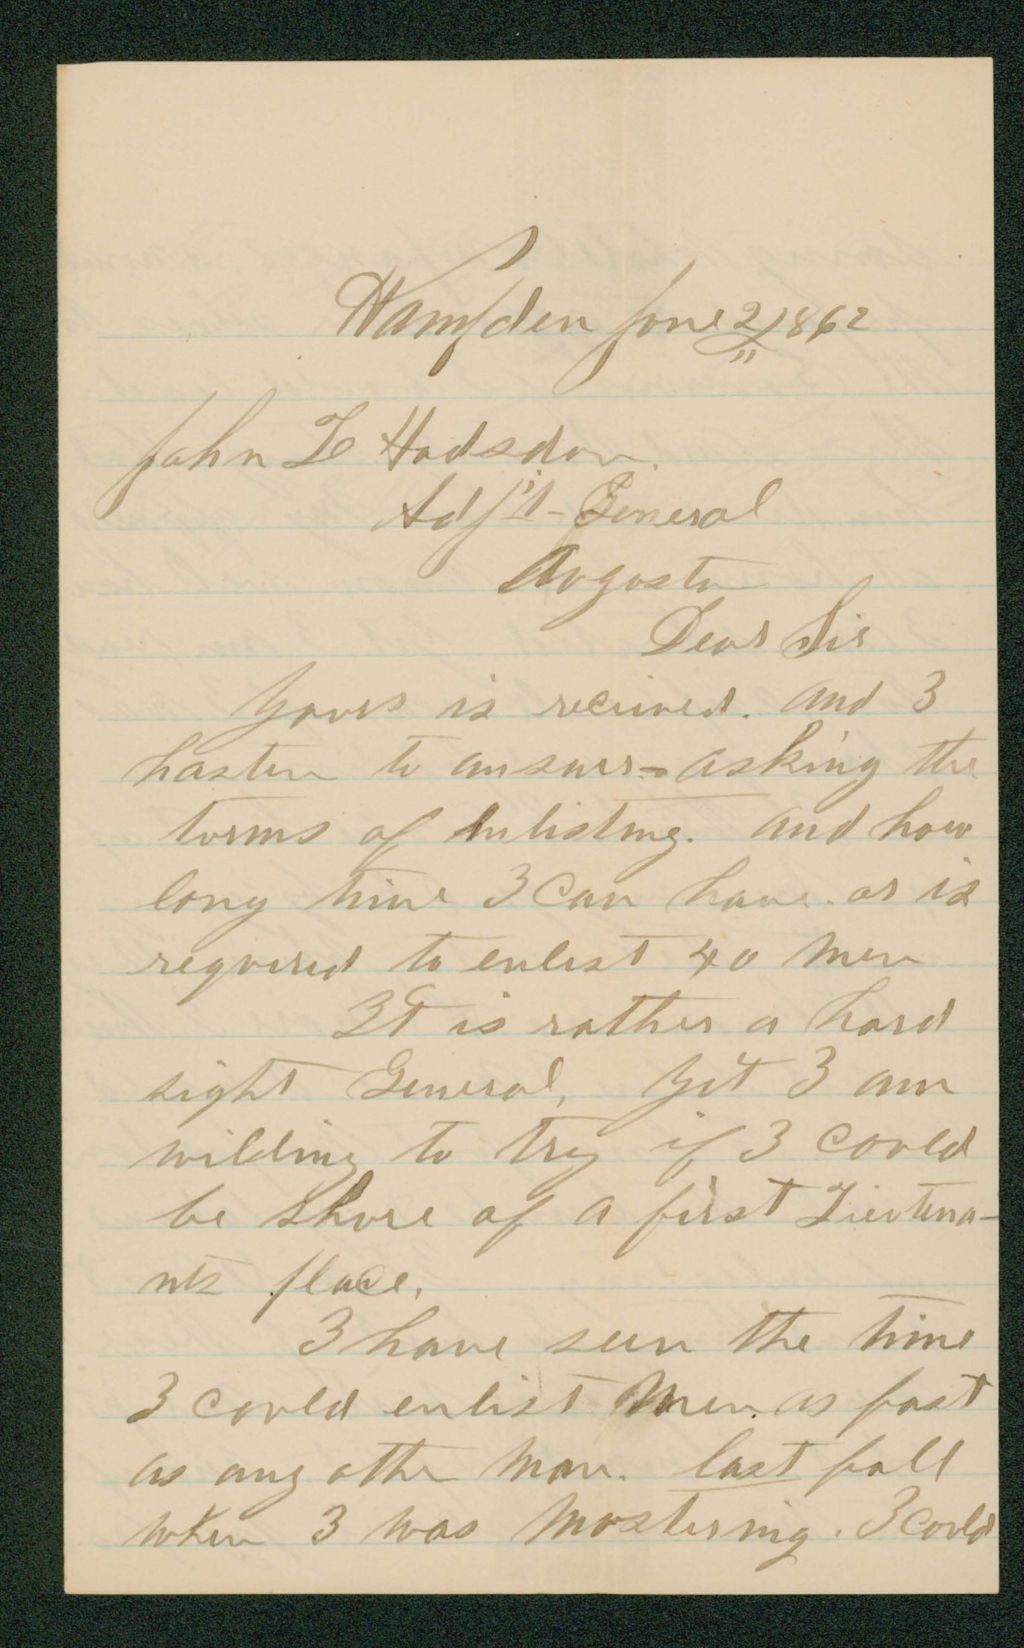 Hampden June 2, 1862
John L Hodsdon.
Adj't-General
Augusta
Dear Sir
Yours is recieved. and I
hasten to answer - asking the
terms of enlisting. and how
long time I can have. or is
required to enlist 40 men
It is rather a hard
sight General, yet I am
willing to try if I could
be shure of a first Lieutena-
nts place.
I have seen the time
I could enlist men as fast
as any other man. last fall
when I was mustering. I could